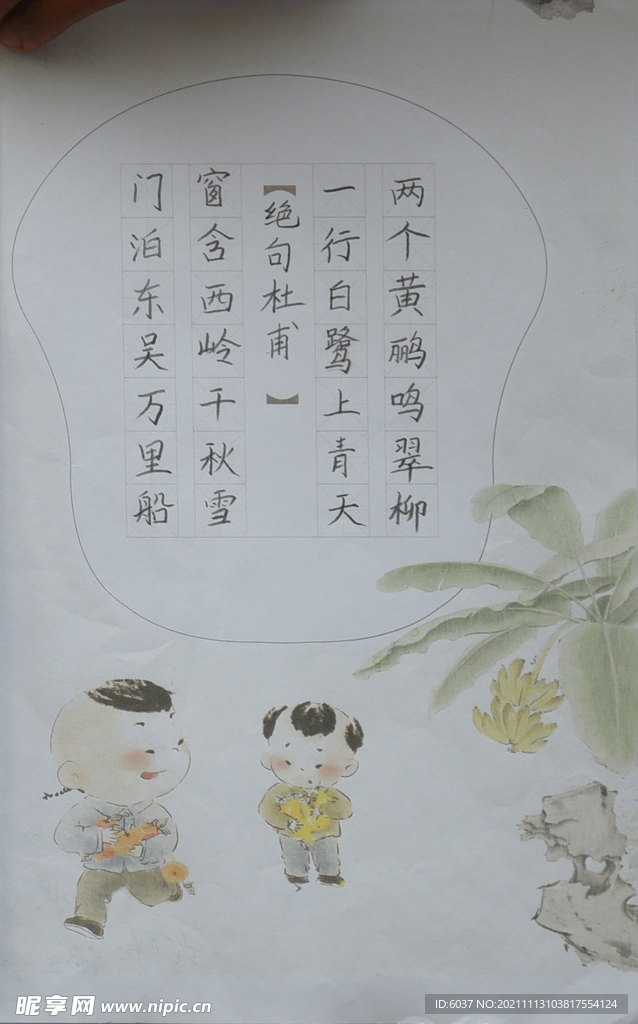 两个黄鹂鸣翠柳
一行白鹭上青天
【绝句杜甫】
窗含西岭千秋雪
门泊东吴万里船
昵享网 www.nipic.cn
ID:6037 NO:20211113103817554124